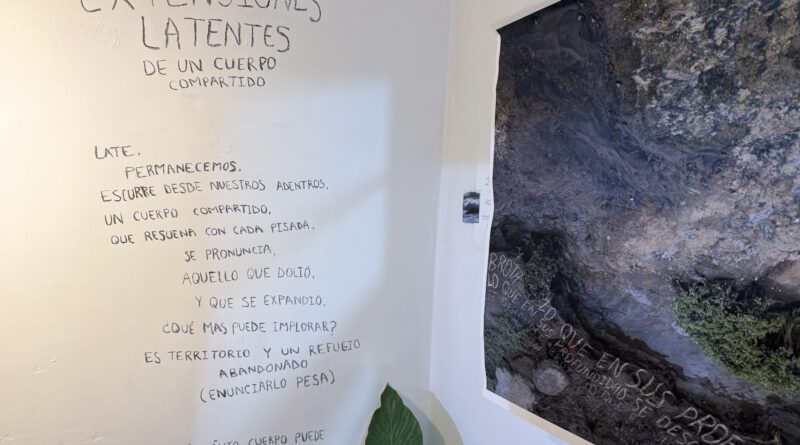 EXTENSIONES
LATENTES
DE UN CUERPO
COMPARTIDO
LATE.
PERMANECEMOS.
ESCURRE DESDE NUESTROS ADENTROS,
UN CUERPO COMPARTIDO,
QUE RESUENA CON CADA PISADA,
SE PRONUNCIA,
AQUELLO QUE DOLIO,
Y QUE SE EXPANDIO.
¿QUÉ MAS PUEDE IMPLORAR?
ES TERRITORIO Y UN REFUGIO
ABANDONADO
(ENUNCIARLO PESA)
CUERPO PUEDE
QUE EN SUS
LO QUE EN SUS
PROFUNDIDAD SE